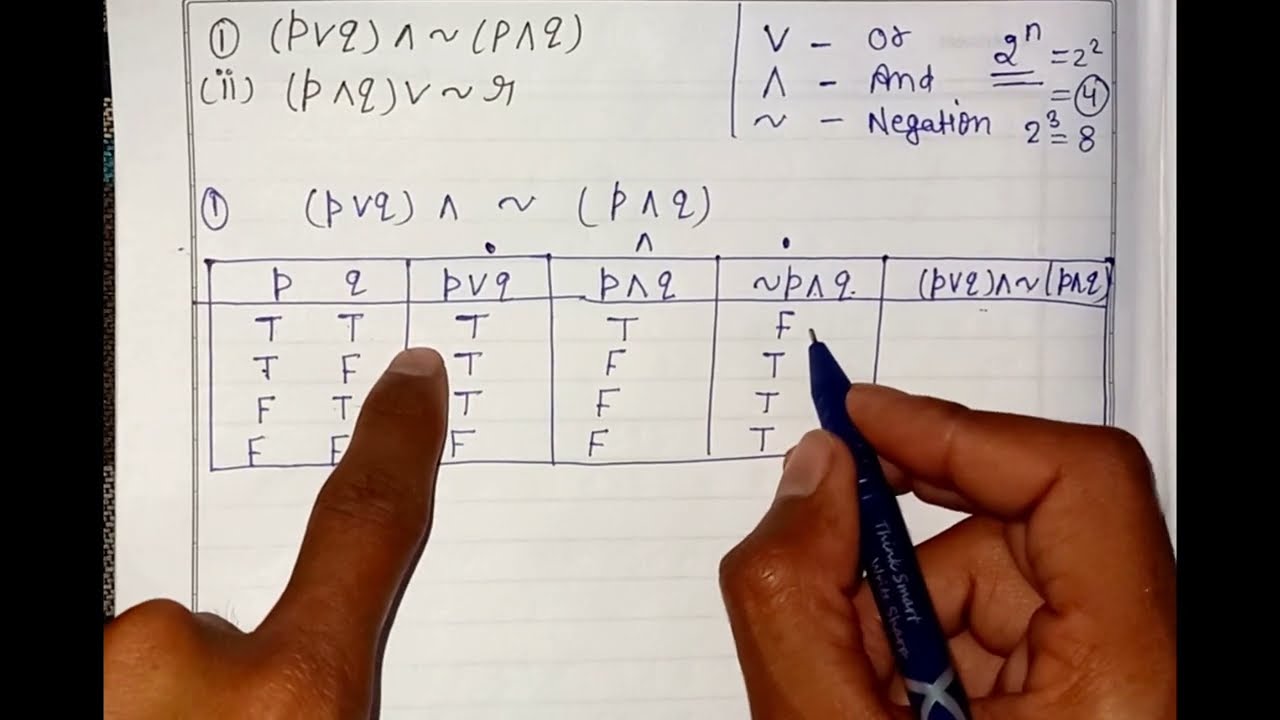 ① (p∨q) ∧ ~ (p∧q)
(ii) (p∧q) ∨ ~ r
∨ - or
∧ - And
~ - Negation
2ⁿ = 2²
= ④
2³ = 8
① (p∨q) ∧ ~ (p∧q)
∧
p q p∨q p∧q ~p∧q. (p∨q)∧~(p∧q)
T T T T F
T F T F T
F T T F T
F F F F T
Think Smart
Write Sharp
X